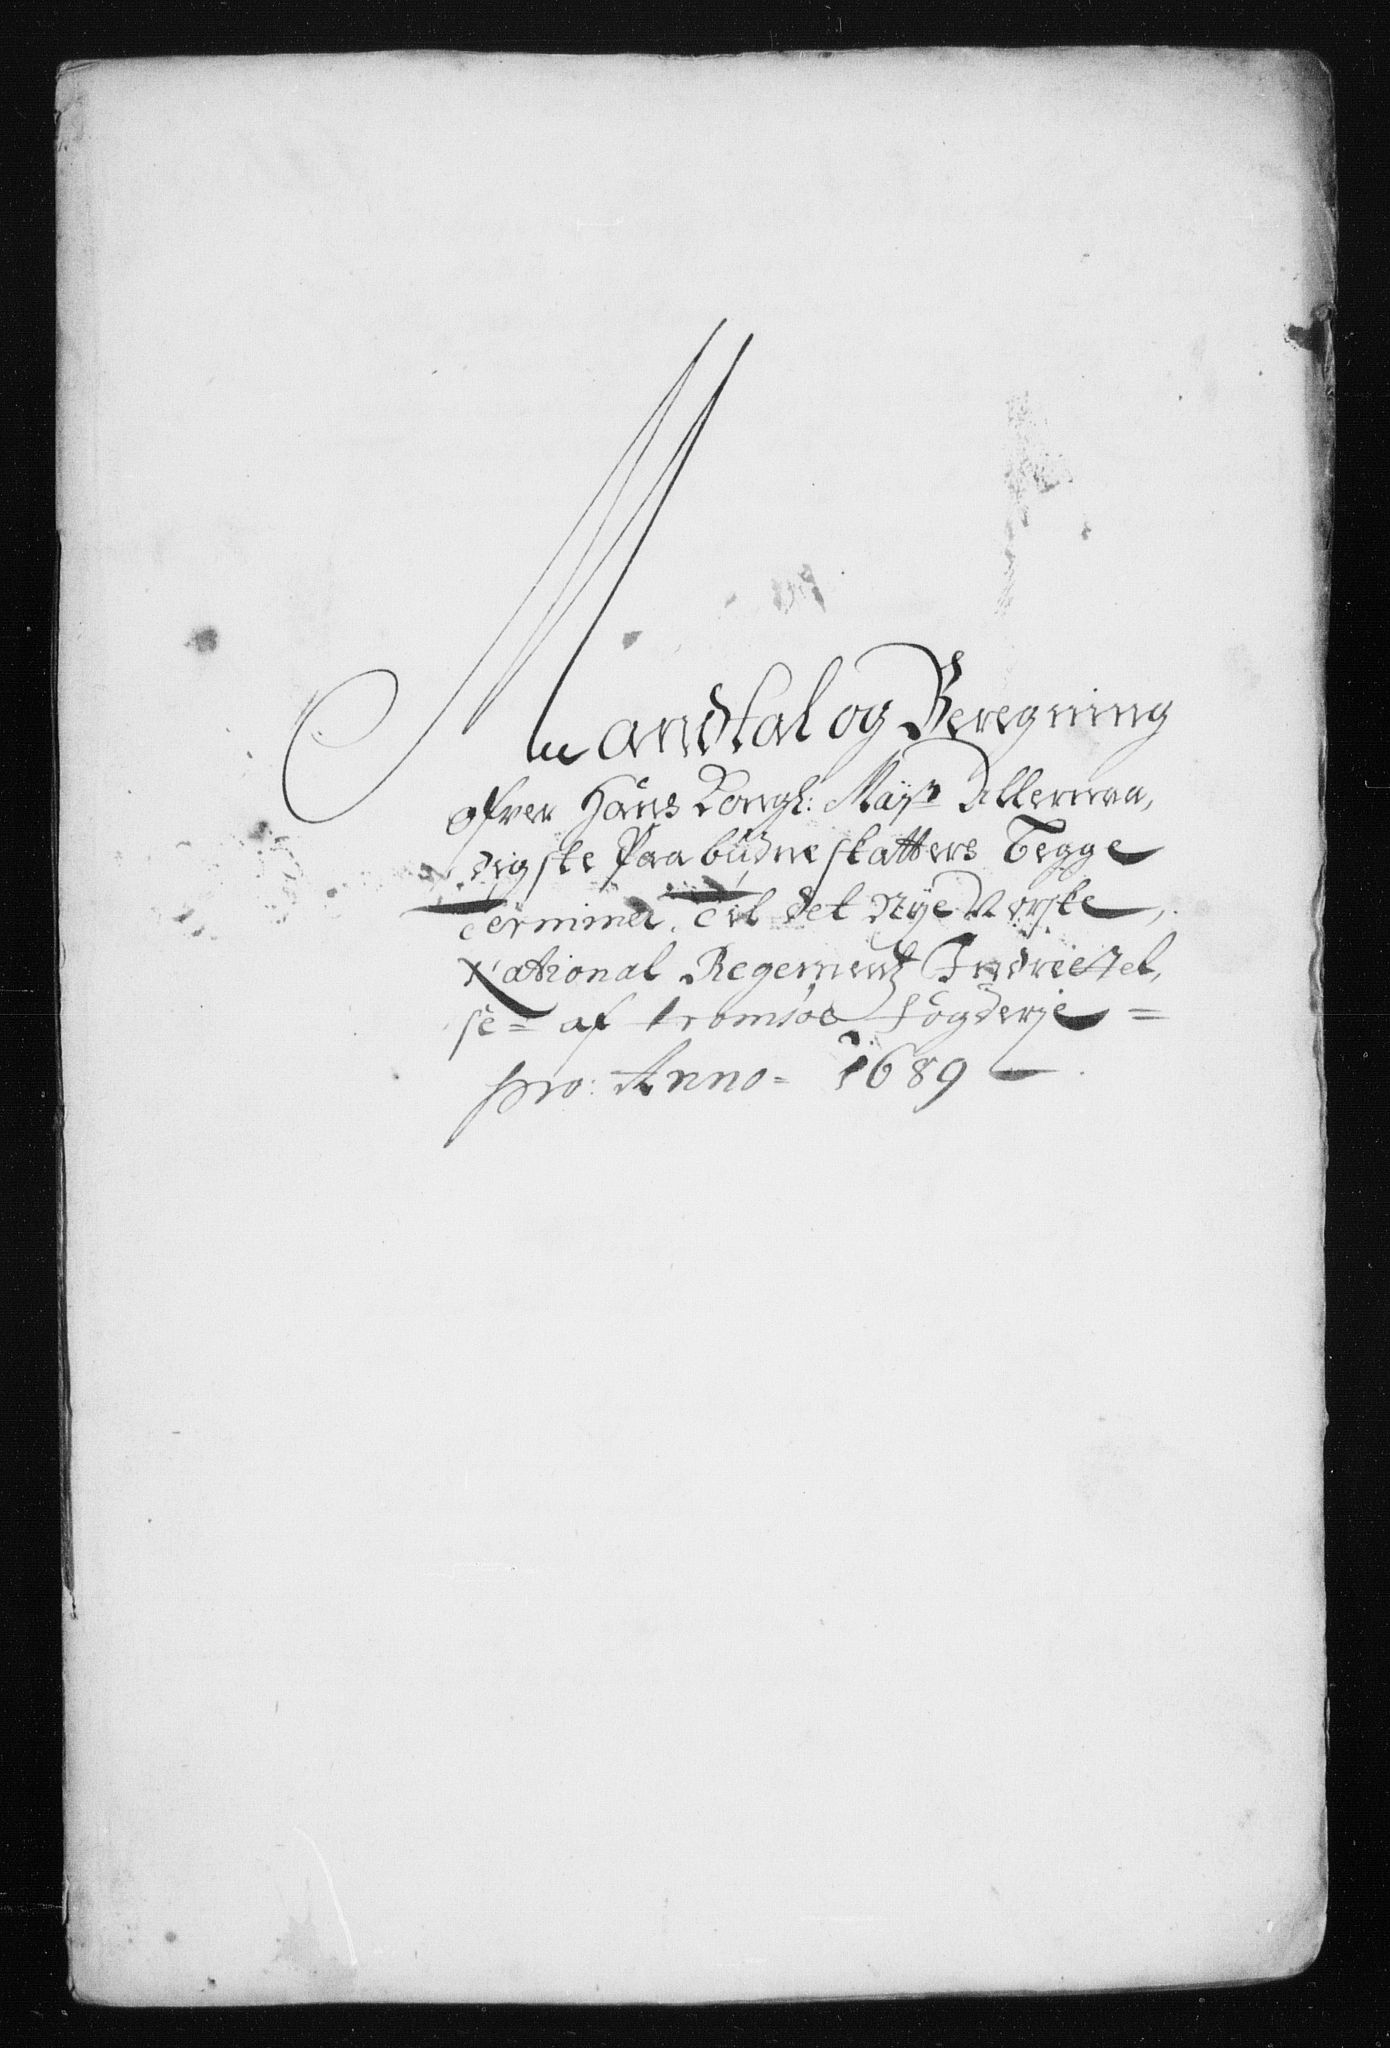 Mandtal og Beregning
ofver Hans Kongl: Mayst Allernaa,
digste Paabudne skatters Begge
Terminer, Til det Nye Norske,
National Regementz Indrettel,
se = af Tromsøe fogderje =
pro: Anno = 1689